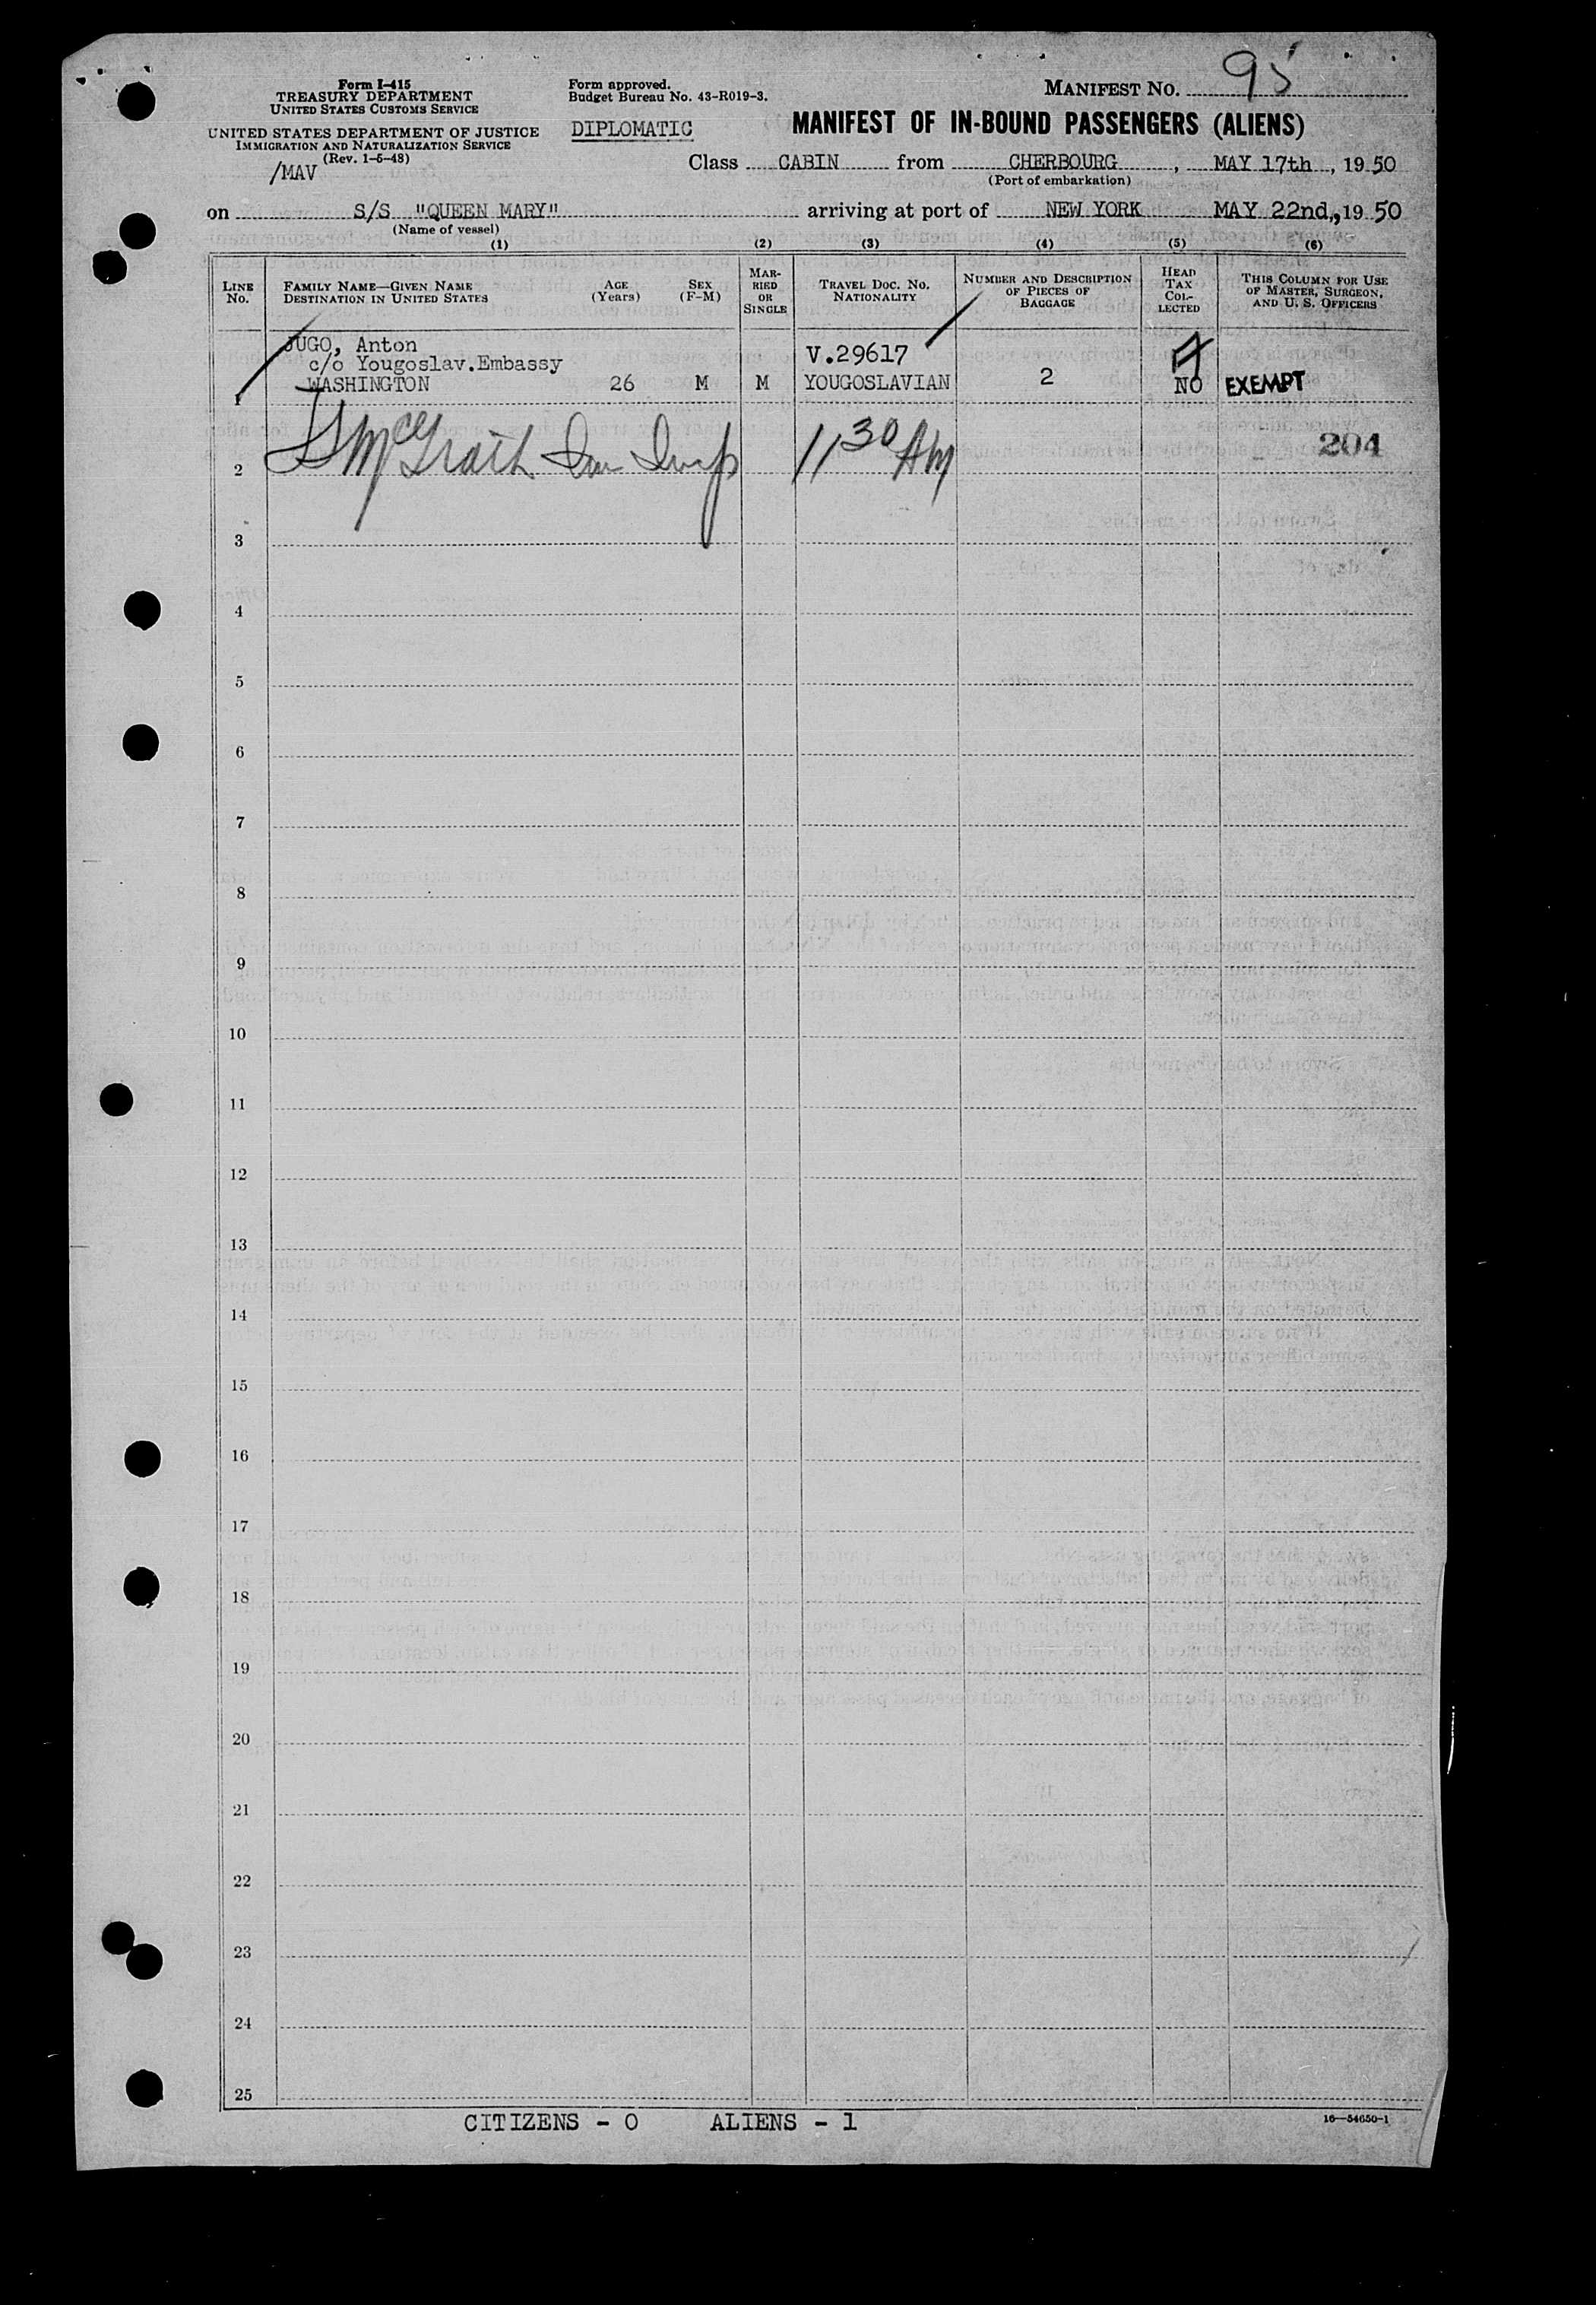 Form I-415
TREASURY DEPARTMENT
UNITED STATES CUSTOMS SERVICE
UNITED STATES DEPARTMENT OF JUSTICE
IMMIGRATION AND NATURALIZATION SERVICE
(Rev. 1-5-48)
/MAV
Form approved.
Budget Bureau No. 43-R019-3.
DIPLOMATIC
MANIFEST NO. 95
MANIFEST OF IN-BOUND PASSENGERS (ALIENS)
Class CABIN from CHERBOURG, MAY 17th, 1950
(Port of embarkation)
on S/S "QUEEN MARY" arriving at port of NEW YORK MAY 22nd., 1950
(Name of vessel)
(1) (2) (3) (4) (5) (6)
LINE No.
FAMILY NAME—GIVEN NAME
DESTINATION IN UNITED STATES
AGE (Years)
SEX (F-M)
MARRIED OR SINGLE
TRAVEL DOC. NO. NATIONALITY
NUMBER AND DESCRIPTION OF PIECES OF BAGGAGE
HEAD TAX COLLECTED
THIS COLUMN FOR USE OF MASTER, SURGEON, AND U. S. OFFICERS
JUGO, Anton V.29617
c/o Yougoslav.Embassy
1 WASHINGTON 26 M M YOUGOSLAVIAN 2 NO EXEMPT
2 McGrath Imm Insp 11 30 AM 204
3
4
5
6
7
8
9
10
11
12
13
14
15
16
17
18
19
20
21
22
23
24
25
CITIZENS - 0 ALIENS - 1
16—54650-1